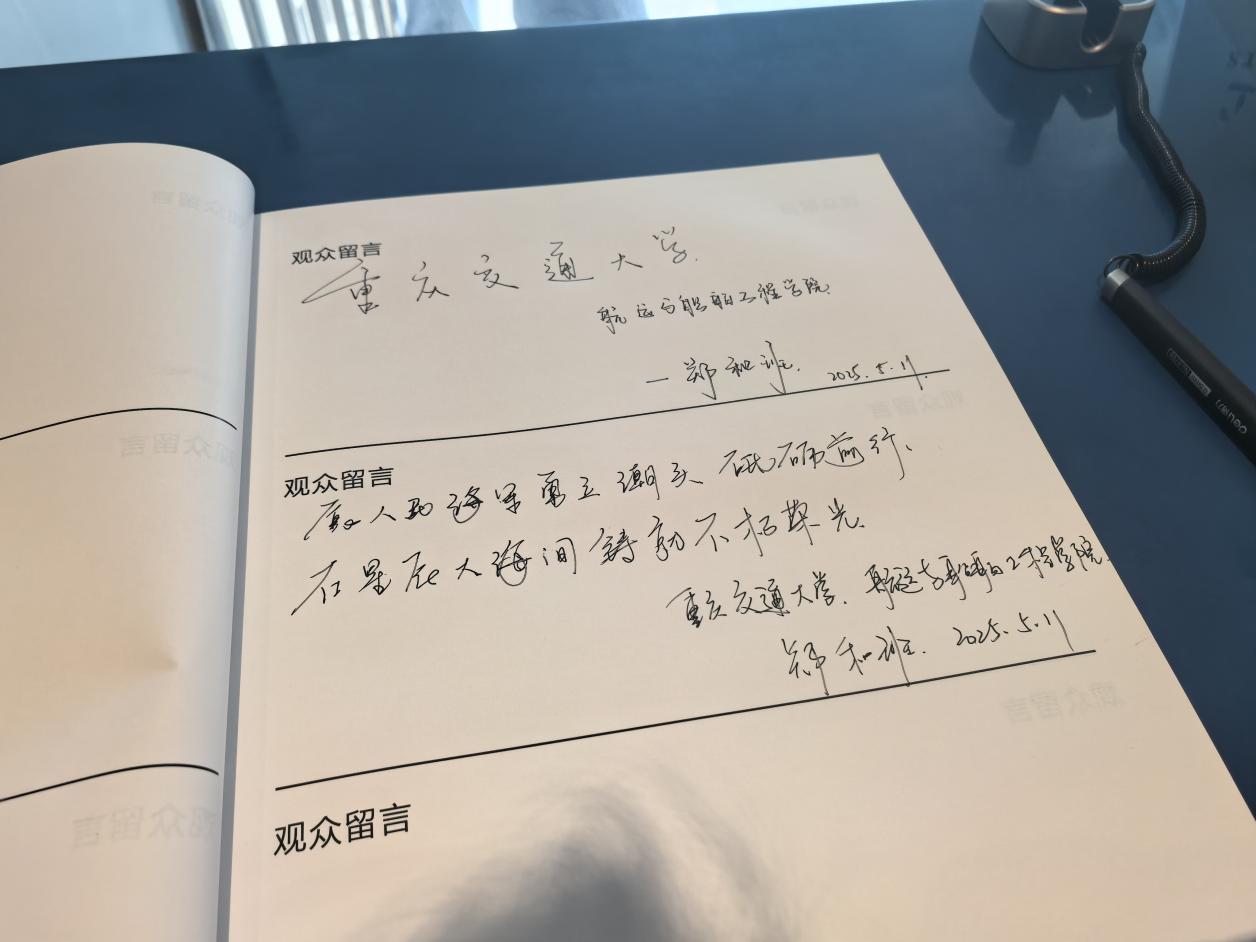 观众留言
重庆交通大学
航运与船舶工程学院
—郑和班. 2025.5.11
观众留言
愿人民海军勇立潮头 砥砺前行、
在星辰大海间铸就不朽荣光.
重庆交通大学. 航运与船舶工程学院.
郑和班. 2025.5.11
观众留言
deli